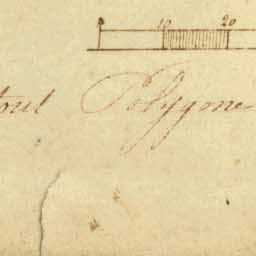 10 20
tout Polygone